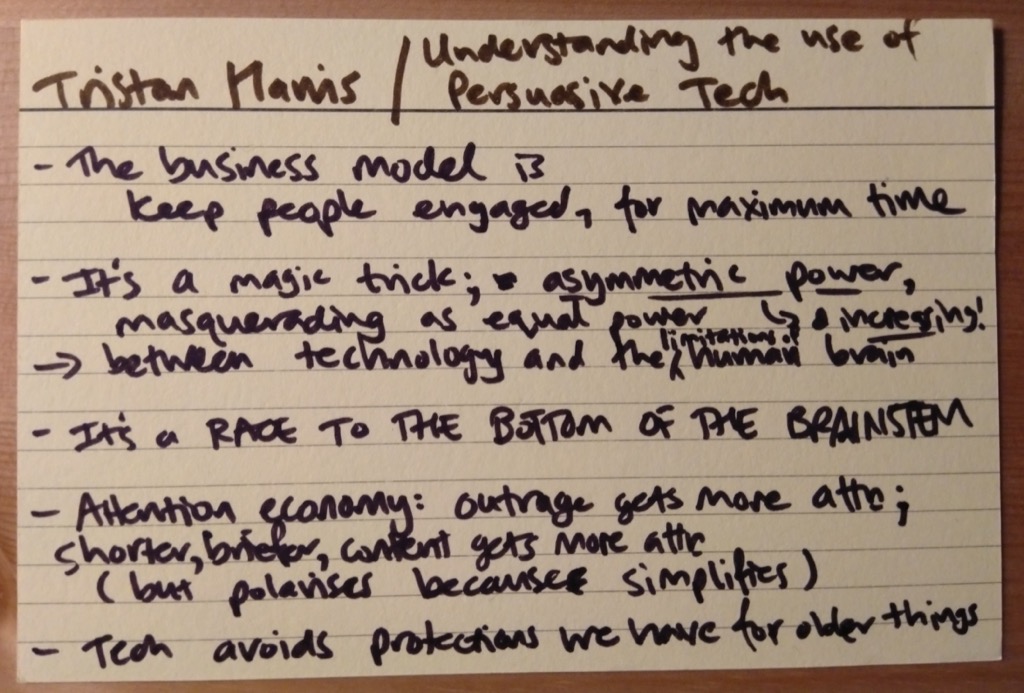 Tristan Harris / Understanding the use of
Persuasive Tech
- The business model is
keep people engaged, for maximum time
- It's a magic trick; asymmetric power,
masquerading as equal power ↳ increasing!
→ between technology and the limitations of human brain
- It's a RACE TO THE BOTTOM OF THE BRAINSTEM
- Attention economy: outrage gets more attn;
shorter, briefer, content gets more attn
(but polarises because simplifies)
- Tech avoids protections we have for older things